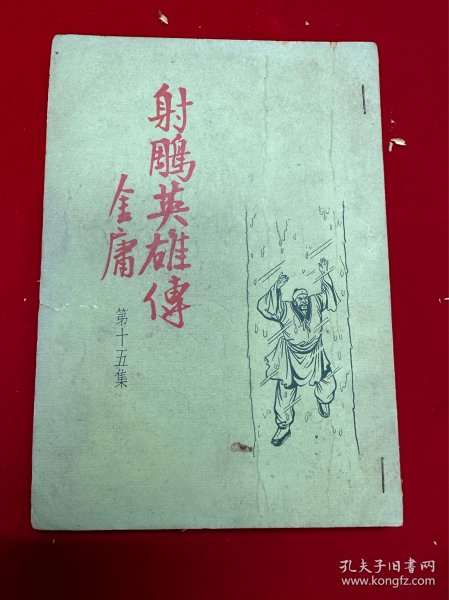 射鵰英雄傳
金庸
第十五集
孔夫子旧书网
www.kongfz.com